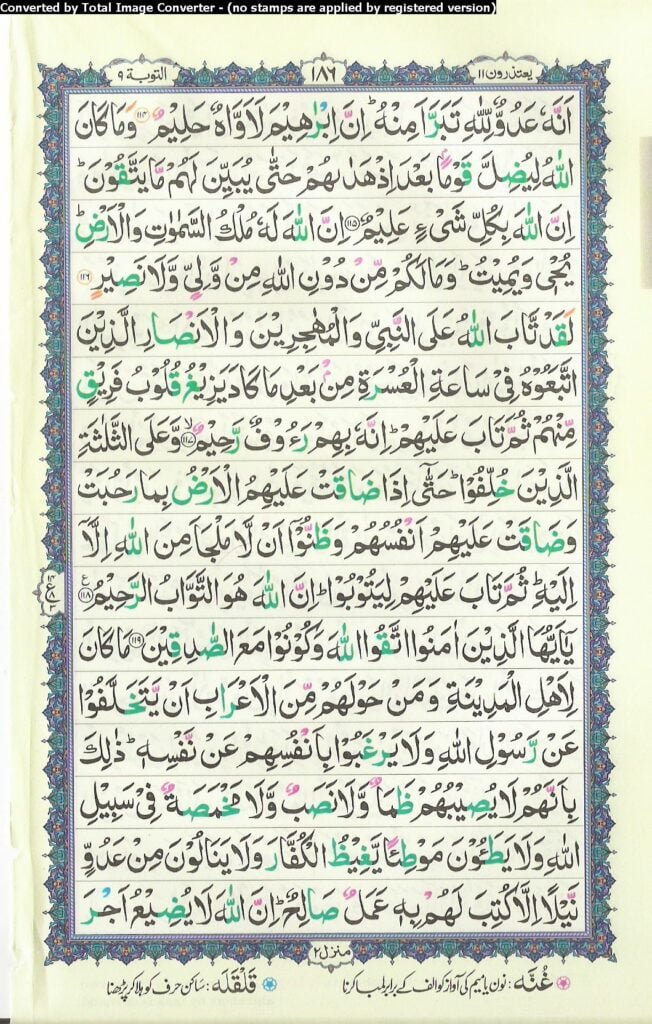 Converted by Total Image Converter - (no stamps are applied by registered version)
یعتذرون ۱۱
۱۸۶
التوبة ۹
اَنَّهٗ عَدُوٌّ لِّلّٰهِ تَبَرَّاَ مِنْهُ ؕ اِنَّ اِبْرٰهِیْمَ لَاَوَّاهٌ حَلِیْمٌ ﴿۱۱۴﴾ وَمَا كَانَ
اللّٰهُ لِیُضِلَّ قَوْمًۢا بَعْدَ اِذْ هَدٰىهُمْ حَتّٰی یُبَیِّنَ لَهُمْ مَّا یَتَّقُوْنَ ؕ
اِنَّ اللّٰهَ بِكُلِّ شَیْءٍ عَلِیْمٌ ﴿۱۱۵﴾ اِنَّ اللّٰهَ لَهٗ مُلْكُ السَّمٰوٰتِ وَالْاَرْضِ ؕ
یُحْیٖ وَیُمِیْتُ ؕ وَمَا لَكُمْ مِّنْ دُوْنِ اللّٰهِ مِنْ وَّلِیٍّ وَّلَا نَصِیْرٍ ﴿۱۱۶﴾
لَقَدْ تَّابَ اللّٰهُ عَلَی النَّبِیِّ وَالْمُهٰجِرِیْنَ وَالْاَنْصَارِ الَّذِیْنَ
اتَّبَعُوْهُ فِیْ سَاعَةِ الْعُسْرَةِ مِنْۢ بَعْدِ مَا كَادَ یَزِیْغُ قُلُوْبُ فَرِیْقٍ
مِّنْهُمْ ثُمَّ تَابَ عَلَیْهِمْ ؕ اِنَّهٗ بِهِمْ رَءُوْفٌ رَّحِیْمٌ ﴿۱۱۷﴾ۙ وَّعَلَی الثَّلٰثَةِ
الَّذِیْنَ خُلِّفُوْا ؕ حَتّٰۤی اِذَا ضَاقَتْ عَلَیْهِمُ الْاَرْضُ بِمَا رَحُبَتْ
وَضَاقَتْ عَلَیْهِمْ اَنْفُسُهُمْ وَظَنُّوْۤا اَنْ لَّا مَلْجَاَ مِنَ اللّٰهِ اِلَّاۤ
اِلَیْهِ ؕ ثُمَّ تَابَ عَلَیْهِمْ لِیَتُوْبُوْا ؕ اِنَّ اللّٰهَ هُوَ التَّوَّابُ الرَّحِیْمُ ﴿۱۱۸﴾ ع
یٰۤاَیُّهَا الَّذِیْنَ اٰمَنُوا اتَّقُوا اللّٰهَ وَكُوْنُوْا مَعَ الصّٰدِقِیْنَ ﴿۱۱۹﴾ مَا كَانَ
لِاَهْلِ الْمَدِیْنَةِ وَمَنْ حَوْلَهُمْ مِّنَ الْاَعْرَابِ اَنْ یَّتَخَلَّفُوْا
عَنْ رَّسُوْلِ اللّٰهِ وَلَا یَرْغَبُوْا بِاَنْفُسِهِمْ عَنْ نَّفْسِهٖ ؕ ذٰلِكَ
بِاَنَّهُمْ لَا یُصِیْبُهُمْ ظَمَاٌ وَّلَا نَصَبٌ وَّلَا مَخْمَصَةٌ فِیْ سَبِیْلِ
اللّٰهِ وَلَا یَطَـُٔوْنَ مَوْطِئًا یَّغِیْظُ الْكُفَّارَ وَلَا یَنَالُوْنَ مِنْ عَدُوٍّ
نَّیْلًا اِلَّا كُتِبَ لَهُمْ بِهٖ عَمَلٌ صَالِحٌ ؕ اِنَّ اللّٰهَ لَا یُضِیْعُ اَجْرَ
منزل ۲
غُنّه: نون یا میم کی آواز کو الف کے برابر لمبا کرنا
قَلْقَلَه: ساکن حرف کو ہلا کر پڑھنا